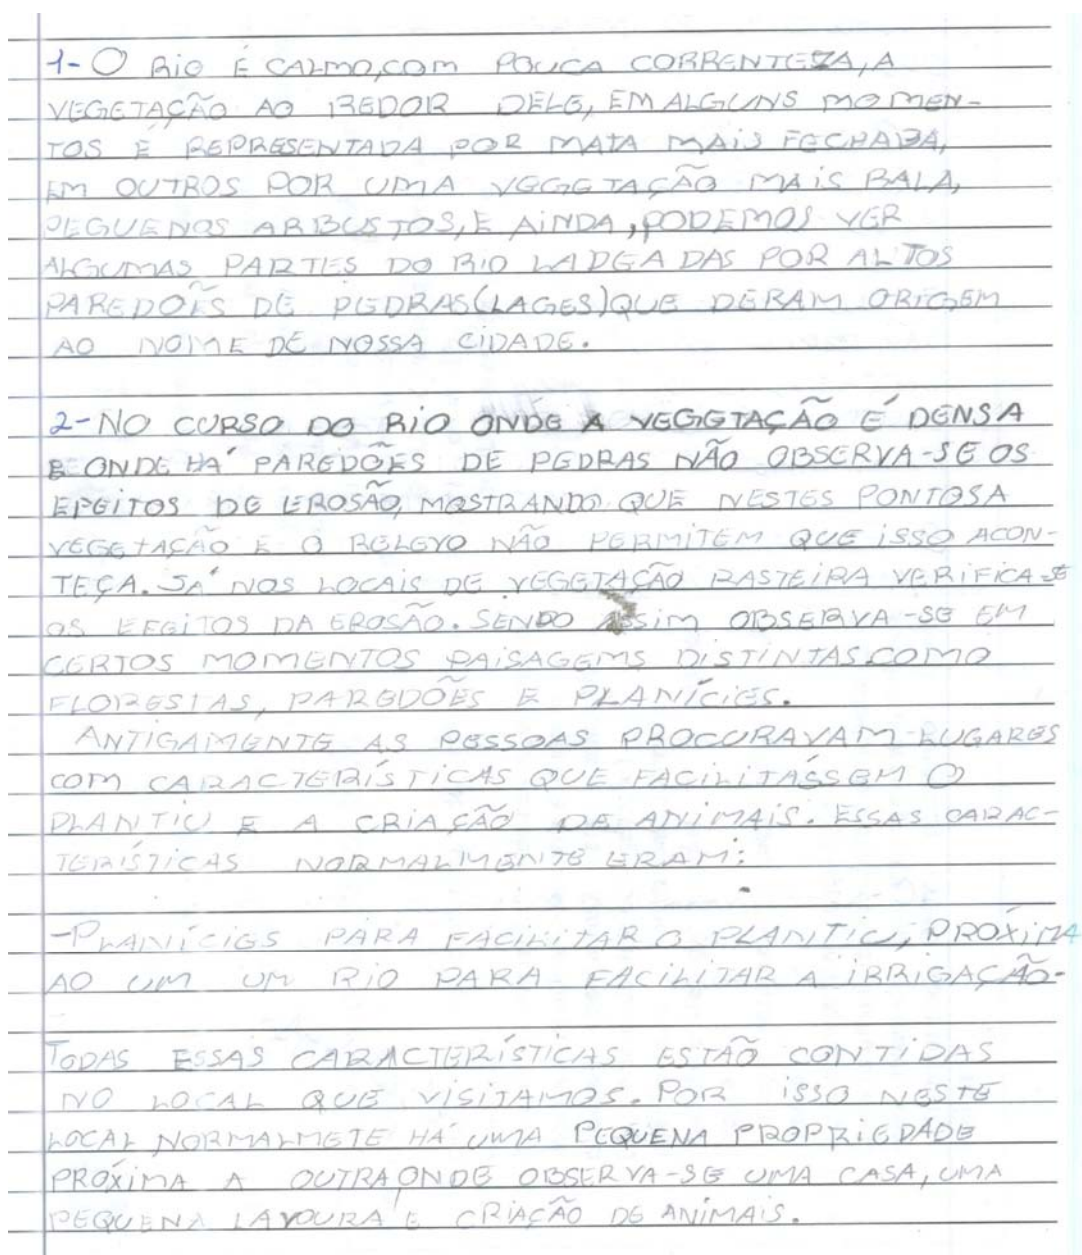 1- O RIO É CALMO,COM POUCA CORRENTEZA, A
VEGETAÇÃO AO REDOR DELE, EM ALGUNS MOMEN-
TOS É REPRESENTADA POR MATA MAIS FECHADA,
EM OUTROS POR UMA VEGETAÇÃO MAIS RALA,
PEGUENOS ARBUSTOS, E AINDA, PODEMOS VER
ALGUMAS PARTES DO RIO LADEADAS POR ALTOS
PAREDÕES DE PEDRAS(LAGES)QUE DERAM ORIGEM
AO NOME DE NOSSA CIDADE.
2-NO CURSO DO RIO ONDE A VEGETAÇÃO É DENSA
E ONDE HÁ PAREDÕES DE PEDRAS NÃO OBSERVA-SE OS
EFEITOS DE EROSÃO, MOSTRANDO QUE NESTES PONTOS A
VEGETAÇÃO E O RELEVO NÃO PERMITEM QUE ISSO ACON-
TEÇA. JÁ NOS LOCAIS DE VEGETAÇÃO RASTEIRA VERIFICA-SE
OS EFEITOS DA EROSÃO. SENDO ASSIM OBSERVA-SE EM
CERTOS MOMENTOS PAISAGEMS DISTINTAS COMO
FLORESTAS, PAREDÕES E PLANÍCIES.
ANTIGAMENTE AS PESSOAS PROCURAVAM LUGARES
COM CARACTERÍSTICAS QUE FACILITASSEM O
PLANTIO E A CRIAÇÃO DE ANIMAIS. ESSAS CARAC-
TERÍSTICAS NORMALMENTE ERAM:
-PLANÍCIES PARA FACILITAR O PLANTIO, PRÓXIMA
AO UM UM RIO PARA FACILITAR A IRRIGAÇÃO.
TODAS ESSAS CARACTERÍSTICAS ESTÃO CONTIDAS
NO LOCAL QUE VISITAMOS. POR ISSO NESTE
LOCAL NORMALMETE HÁ UMA PEQUENA PROPRIEDADE
PRÓXIMA A OUTRA ONDE OBSERVA-SE UMA CASA, UMA
PEQUENA LAVOURA E CRIAÇÃO DE ANIMAIS.